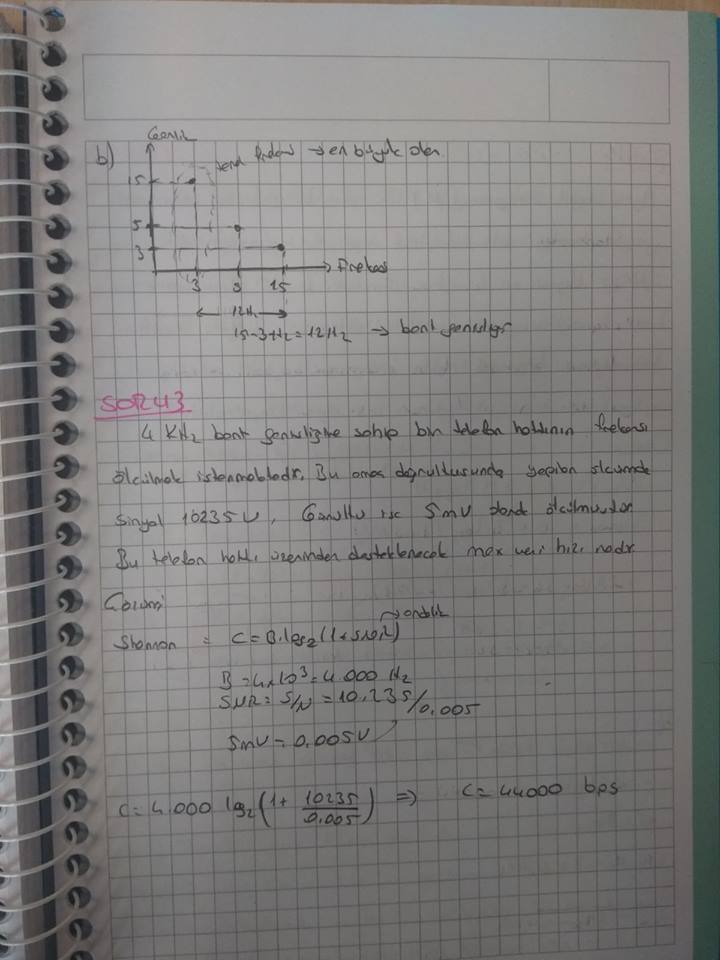 Genlik
b)
en büyük olan
15
5
3
Frekans
3 9 15
12Hz
15-3Hz=12Hz → bant genişliği
SORU3
4 KHz bant genişliğine sahip bir telefon hattının frekansı
ölçülmek istenmektedir. Bu amaç doğrultusunda yapılan ölçümde
sinyal 10235V, Gürültü ise 5mV olarak ölçülmüştür.
Bu telefon hattı üzerinden desteklenecek max veri hızı nedir
Çözüm
Shannon = C=B.log2(1+SNR) → ondalık
B=4x10³=4.000 Hz
SNR=S/N=10.235/0.005
5mV=0.005V
C=4.000 log2(1+10235/0.005) ⇒ C=44000 bps